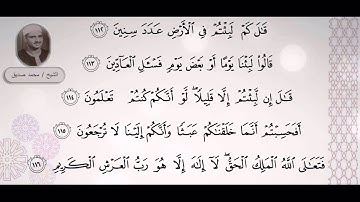 قَٰلَ كَمْ لَبِثْتُمْ فِي الْأَرْضِ عَدَدَ سِنِينَ ١١٢
قَالُوا لَبِثْنَا يَوْمًا أَوْ بَعْضَ يَوْمٍ فَسْـَٔلِ الْعَآدِّينَ ١١٣
قَٰلَ إِن لَّبِثْتُمْ إِلَّا قَلِيلًا لَّوْ أَنَّكُمْ كُنتُمْ تَعْلَمُونَ ١١٤
أَفَحَسِبْتُمْ أَنَّمَا خَلَقْنَٰكُمْ عَبَثًا وَأَنَّكُمْ إِلَيْنَا لَا تُرْجَعُونَ ١١٥
فَتَعَٰلَى اللَّهُ الْمَلِكُ الْحَقُّ لَآ إِلَٰهَ إِلَّا هُوَ رَبُّ الْعَرْشِ الْكَرِيمِ ١١٦
الشيخ / محمد صديق